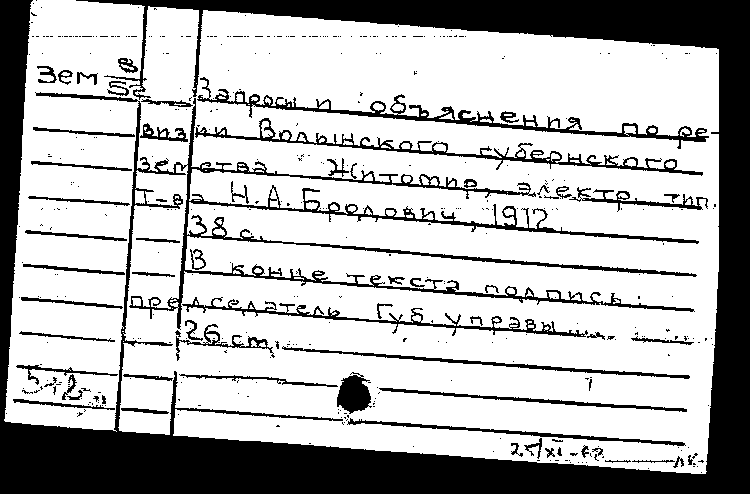 Зем 8
Запросы и объяснения по ре-
визии Волынского губернского
земства. Житомир, электр. тип.
Т-ва Н.А. Бродович, 1912.
38 с.
В конце текста подпись:
председатель Губ. управы ...
26 см.
25/XI-